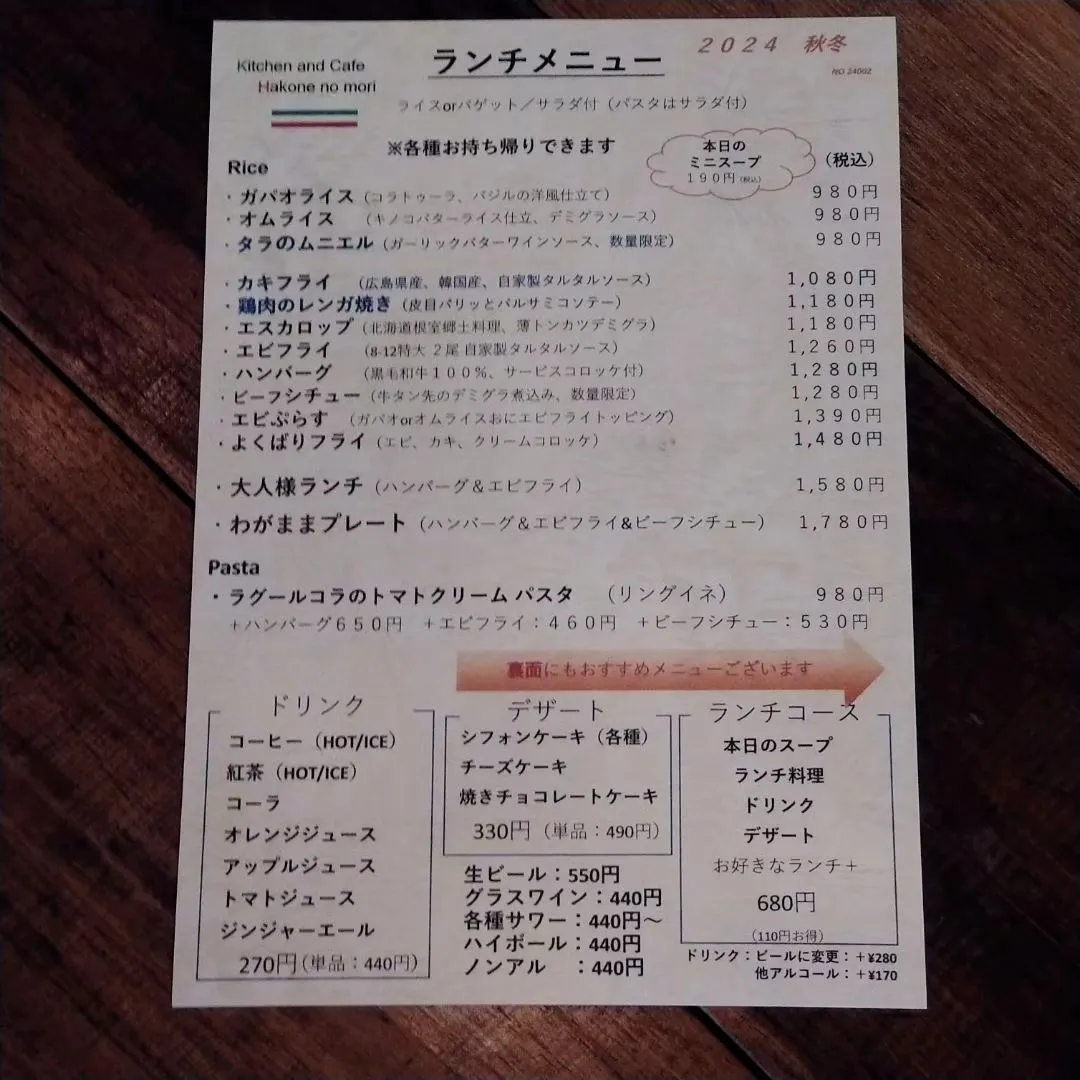 Kitchen and Cafe
Hakone no mori
ランチメニュー
２０２４　秋冬
NO 24002
ライスorバゲット／サラダ付（パスタはサラダ付）
※各種お持ち帰りできます
本日の
ミニスープ
１９０円（税込）
（税込）
Rice
・ガパオライス（コラトゥーラ、バジルの洋風仕立て） ９８０円
・オムライス （キノコバターライス仕立、デミグラソース） ９８０円
・タラのムニエル（ガーリックバターワインソース、数量限定） ９８０円
・カキフライ （広島県産、韓国産、自家製タルタルソース） １,０８０円
・鶏肉のレンガ焼き（皮目パリッとバルサミコソテー） １,１８０円
・エスカロップ（北海道根室郷土料理、薄トンカツデミグラ） １,１８０円
・エビフライ （8-12特大 ２尾 自家製タルタルソース） １,２６０円
・ハンバーグ （黒毛和牛１００％、サービスコロッケ付） １,２８０円
・ビーフシチュー（牛タン先のデミグラ煮込み、数量限定） １,２８０円
・エビぷらす （ガパオorオムライスおにエビフライトッピング） １,３９０円
・よくばりフライ（エビ、カキ、クリームコロッケ） １,４８０円
・大人様ランチ（ハンバーグ＆エビフライ） １,５８０円
・わがままプレート（ハンバーグ＆エビフライ&ビーフシチュー） １,７８０円
Pasta
・ラグールコラのトマトクリーム パスタ （リングイネ） ９８０円
＋ハンバーグ６５０円 ＋エビフライ：４６０円 ＋ビーフシチュー：５３０円
裏面にもおすすめメニューございます
ドリンク
コーヒー（HOT/ICE）
紅茶（HOT/ICE）
コーラ
オレンジジュース
アップルジュース
トマトジュース
ジンジャーエール
270円（単品：440円）
デザート
シフォンケーキ（各種）
チーズケーキ
焼きチョコレートケーキ
330円（単品：490円）
生ビール：550円
グラスワイン：440円
各種サワー：440円～
ハイボール：440円
ノンアル ：440円
ランチコース
本日のスープ
ランチ料理
ドリンク
デザート
お好きなランチ＋
680円
（110円お得）
ドリンク：ビールに変更：＋¥280
他アルコール：＋¥170